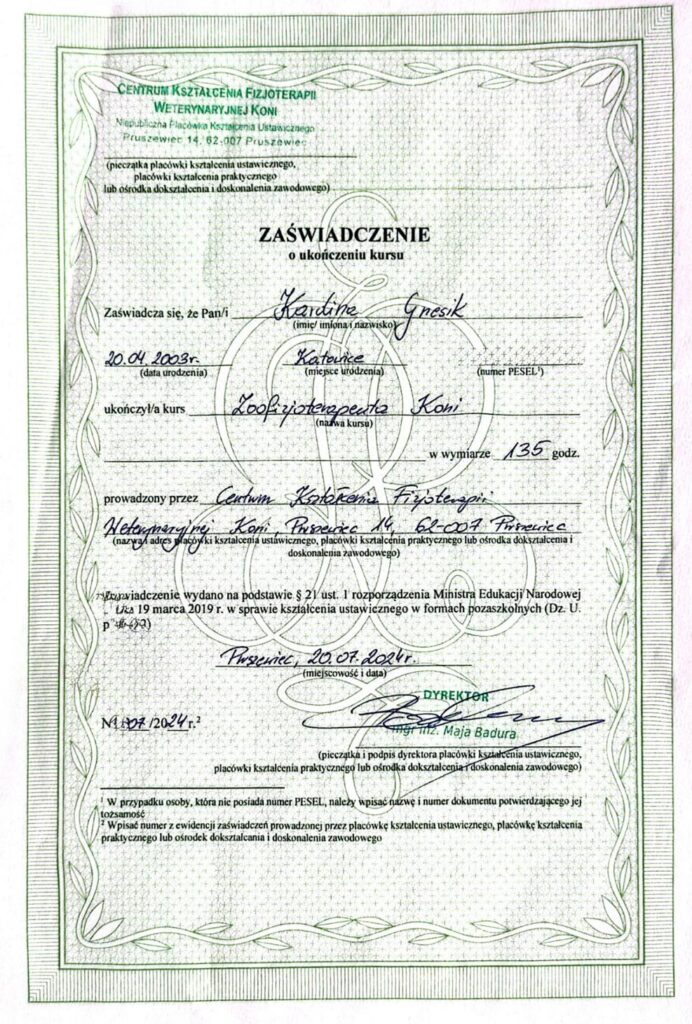 CENTRUM KSZTAŁCENIA FIZJOTERAPII
WETERYNARYJNEJ KONI
Niepubliczna Placówka Kształcenia Ustawicznego
Pruszewiec 14, 62-007 Pruszewiec
(pieczątka placówki kształcenia ustawicznego,
placówki kształcenia praktycznego
lub ośrodka dokształcania i doskonalenia zawodowego)
ZAŚWIADCZENIE
o ukończeniu kursu
Zaświadcza się, że Pan/i Karolina Gnesik
(imię/ imiona i nazwisko)
20.04.2003r. Katowice
(data urodzenia) (miejsce urodzenia) (numer PESEL¹)
ukończył/a kurs Zoofizjoterapeuta Koni
(nazwa kursu)
w wymiarze 135 godz.
prowadzony przez Centrum Kształcenia Fizjoterapii
Weterynaryjnej Koni, Pruszewiec 14, 62-007 Pruszewiec
(nazwa i adres placówki kształcenia ustawicznego, placówki kształcenia praktycznego lub ośrodka dokształcania i
doskonalenia zawodowego)
Zaświadczenie wydano na podstawie § 21 ust. 1 rozporządzenia Ministra Edukacji Narodowej
19 marca 2019 r. w sprawie kształcenia ustawicznego w formach pozaszkolnych (Dz. U.
Pruszewiec, 20.07.2024r.
(miejscowość i data)
DYREKTOR
/07/2024 r.²
mgr inż. Maja Badura
(pieczątka i podpis dyrektora placówki kształcenia ustawicznego,
placówki kształcenia praktycznego lub ośrodka dokształcania i doskonalenia zawodowego)
¹ W przypadku osoby, która nie posiada numer PESEL, należy wpisać nazwę i numer dokumentu potwierdzającego jej
tożsamość
² Wpisać numer z ewidencji zaświadczeń prowadzonej przez placówkę kształcenia ustawicznego, placówkę kształcenia
praktycznego lub ośrodek dokształcania i doskonalenia zawodowego